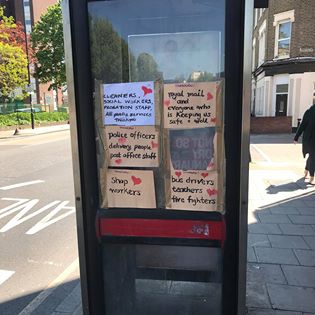 CLEANERS,
SOCIAL WORKERS,
PROBATION STAFF,
All public services
royal mail
and
everyone who
is keeping us
safe + well
police officers
delivery people
post office staff
Shop
workers
bus drivers
teachers
fire fighters